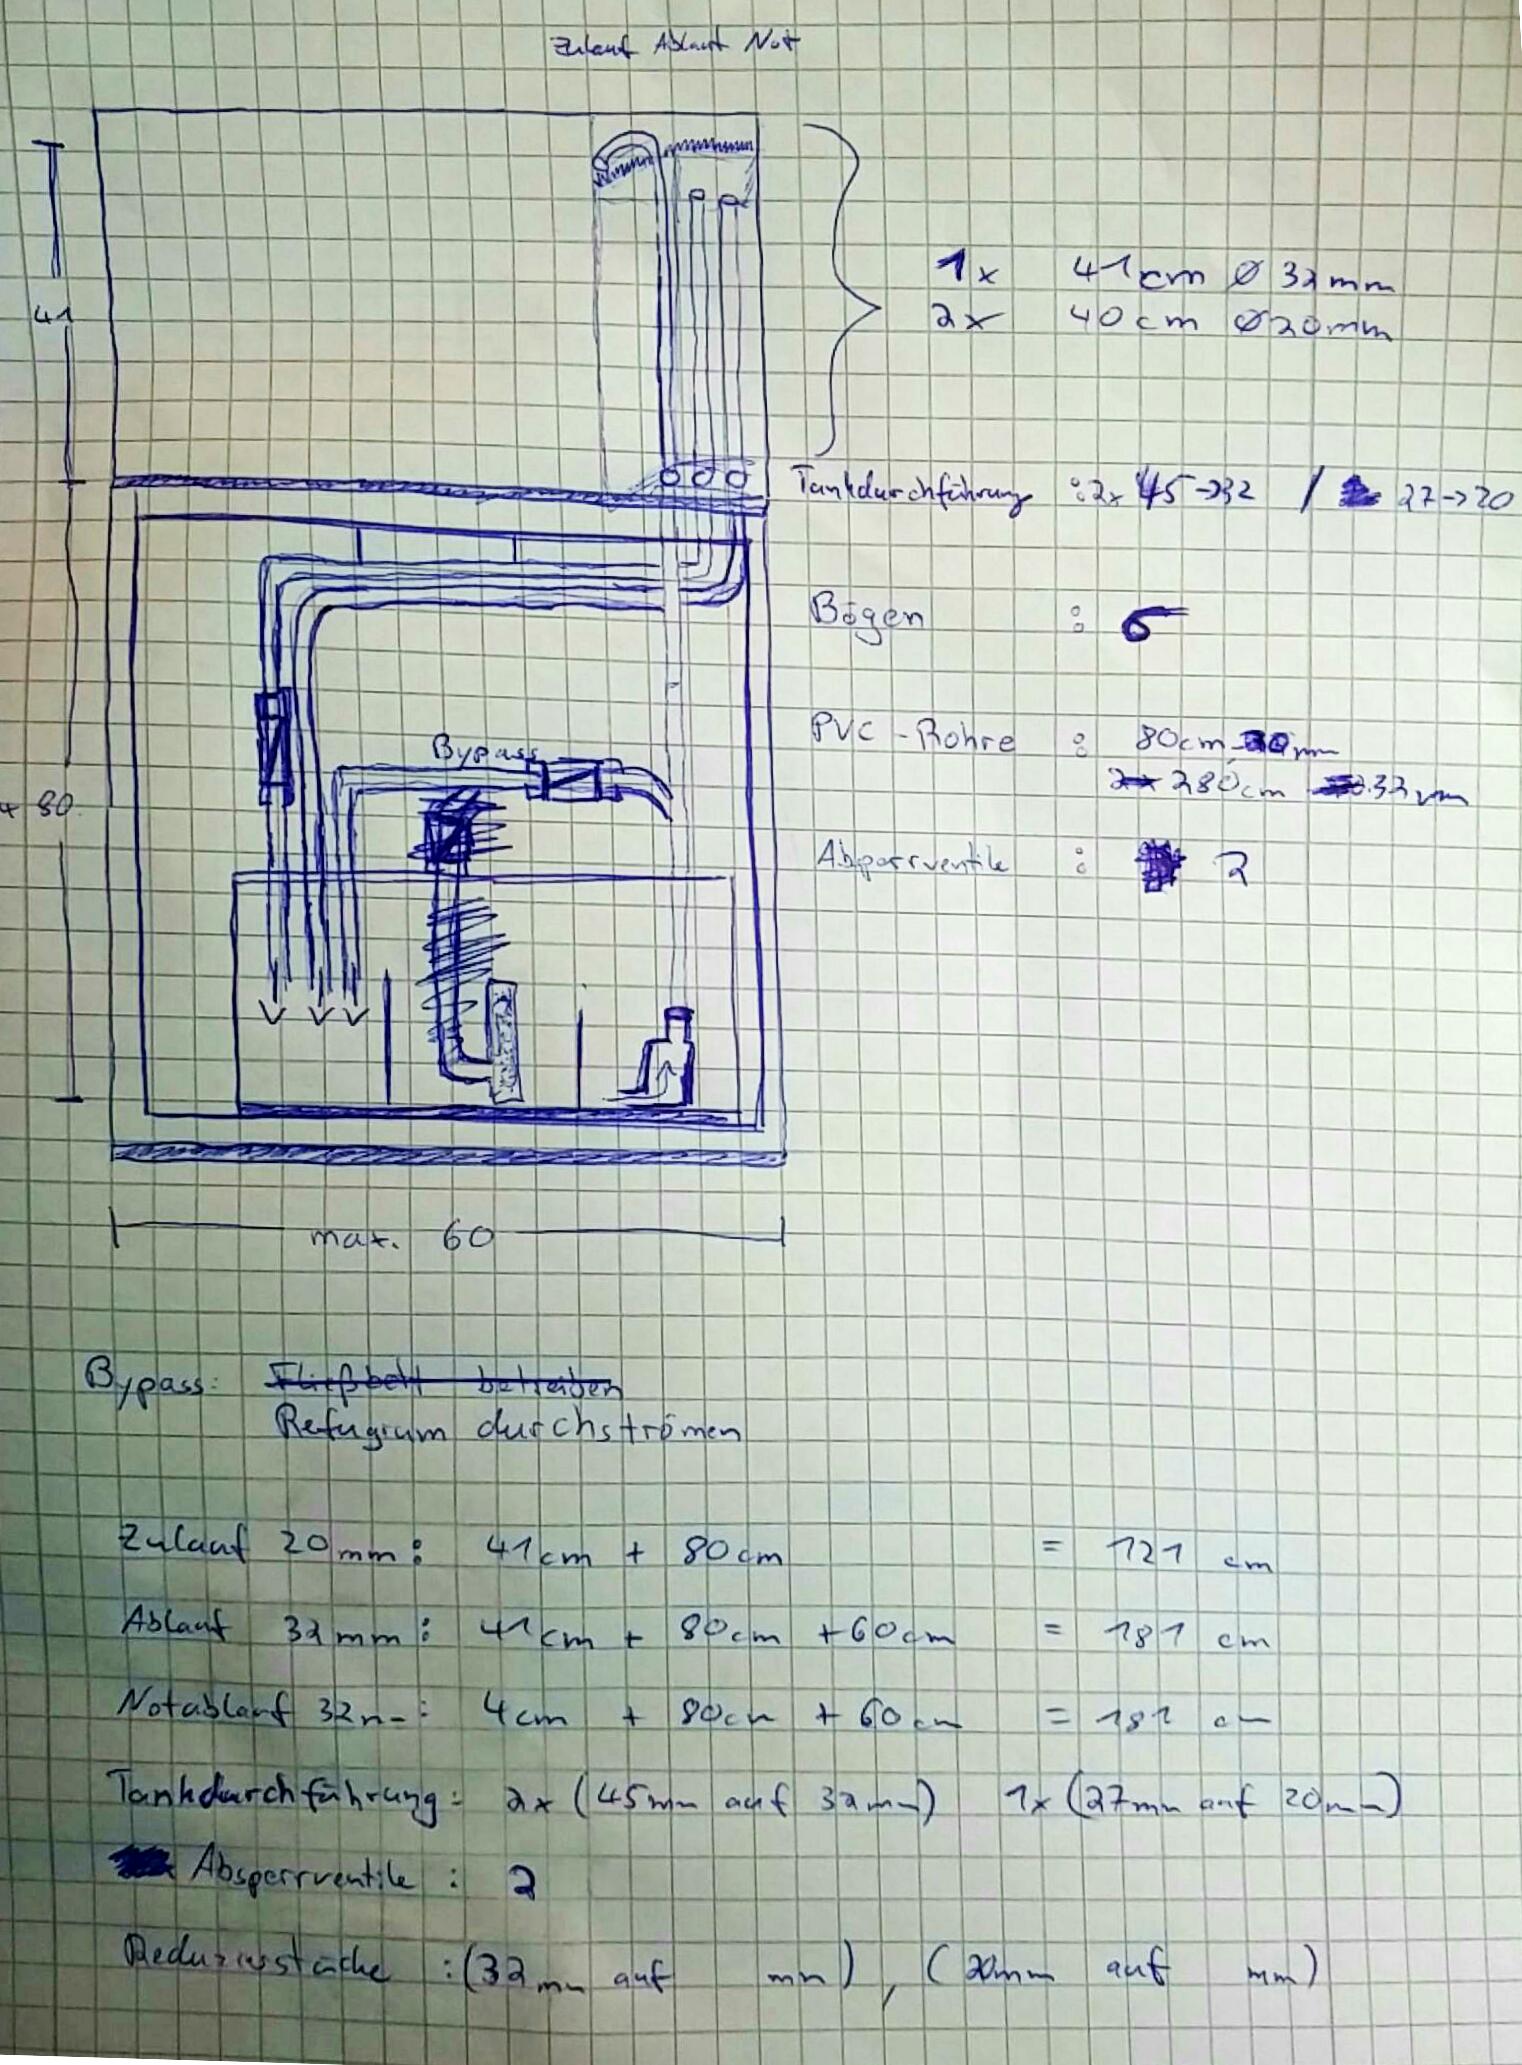 Zulauf Ablauf Not
1x 41cm Ø 32mm
2x 40cm Ø20mm
41
Tankdurchführung : 2x 45->32 / 27->20
Bögen : 6
PVC-Rohre : 80cm mm
280cm 32mm
Bypass
80
Absperrventile : 2
max. 60
Bypass: Fließbett betreiben
Refugium durchströmen
Zulauf 20mm: 41cm + 80cm = 121 cm
Ablauf 32mm: 41cm + 80cm +60cm = 181 cm
Notablauf 32m: 4cm + 80cm + 60cm = 181 cm
Tankdurchführung: 2x (45mm auf 32mm) 1x (27mm auf 20mm)
Absperrventile : 2
Reduzierstücke :(32mm auf mm), (20mm auf mm)